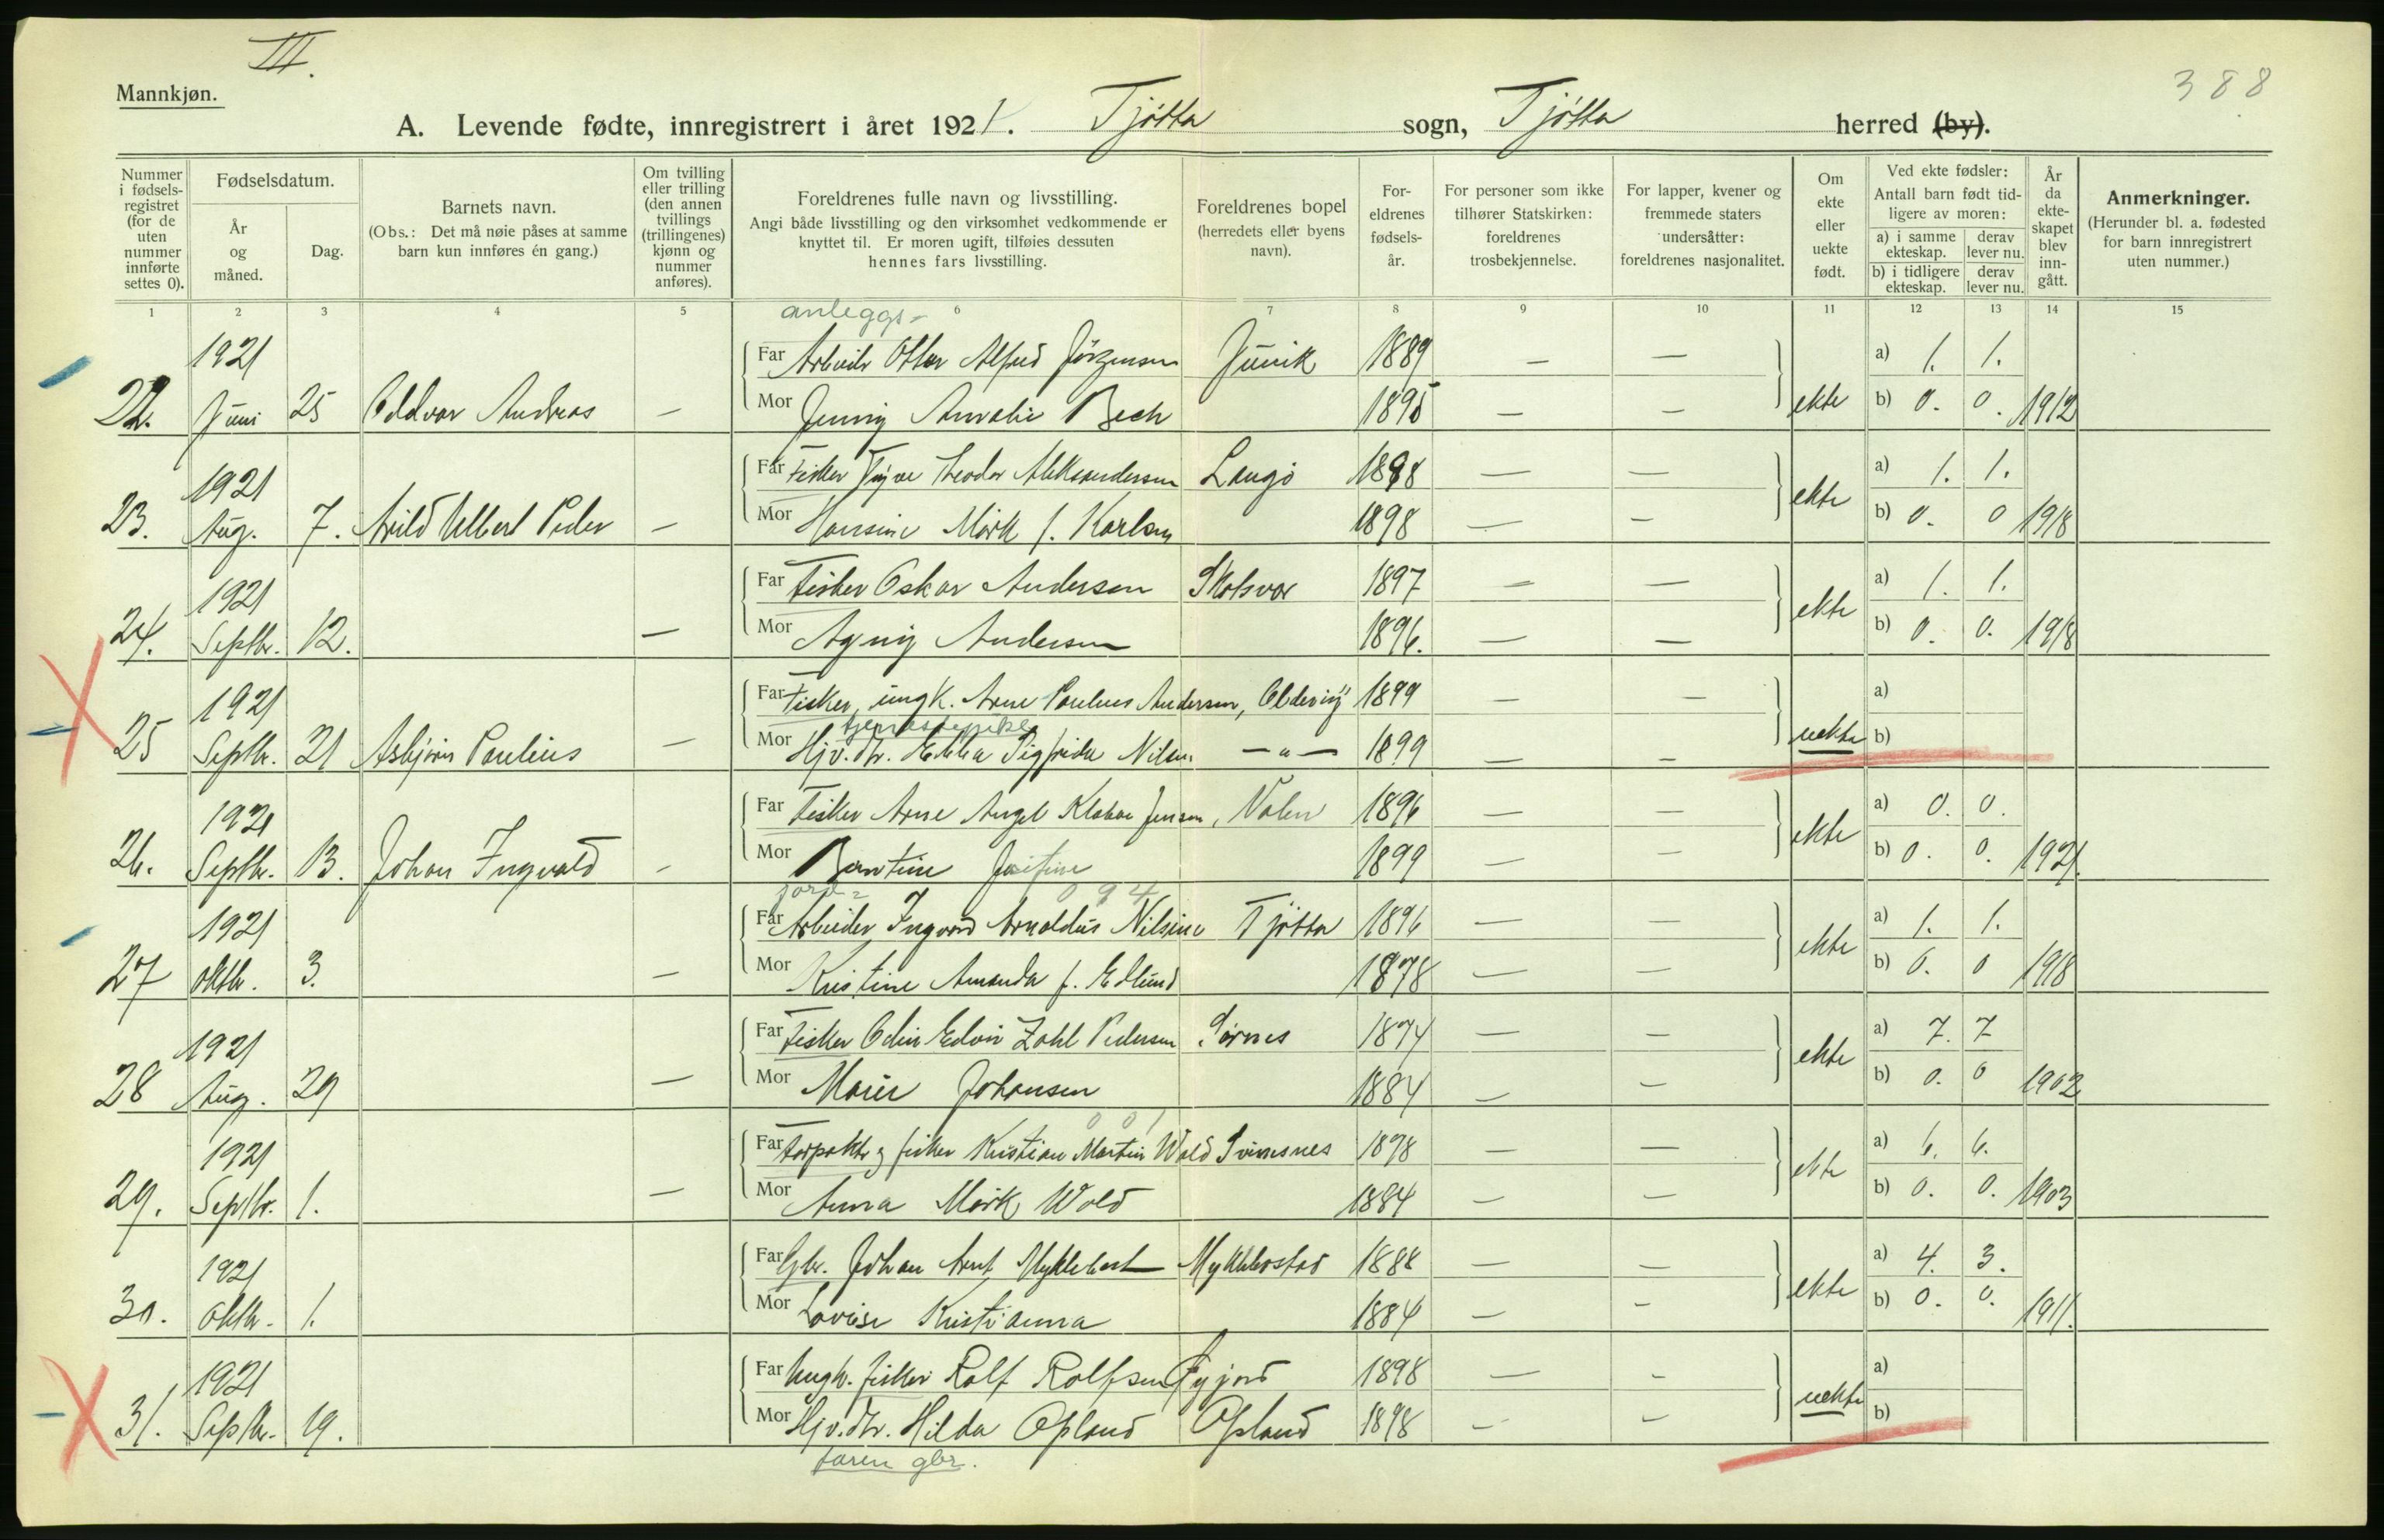 III.
Mannkjøn.
388
A. Levende fødte, innregistrert i året 1921. Tjøtta sogn, Tjøtta herred (by).
Nummer i fødsels-registret (for de uten nummer innførte settes 0).
Fødselsdatum.
År og måned.
Dag.
Barnets navn.
(Obs.: Det må nøie påses at samme barn kun innføres én gang.)
Om tvilling eller trilling (den annen tvillings (trillingenes) kjønn og nummer anføres).
Foreldrenes fulle navn og livsstilling.
Angi både livsstilling og den virksomhet vedkommende er knyttet til. Er moren ugift, tilføies dessuten hennes fars livsstilling.
Foreldrenes bopel (herredets eller byens navn).
For-eldrenes fødsels-år.
For personer som ikke tilhører Statskirken: foreldrenes trosbekjennelse.
For lapper, kvener og fremmede staters undersåtter: foreldrenes nasjonalitet.
Om ekte eller uekte født.
Ved ekte fødsler: Antall barn født tid-ligere av moren:
a) i samme ekteskap. derav lever nu.
b) i tidligere ekteskap. derav lever nu.
År da ekte-skapet blev inn-gått.
Anmerkninger.
(Herunder bl. a. fødested for barn innregistrert uten nummer.)
1 2 3 4 5 6 7 8 9 10 11 12 13 14 15
anleggs-
1921 Far Arbeider Ottar Alfred Jörgensen 1889 — — a) 1. 1.
22. Juni 25 Oddvar Andreas — Mor Jenny Amalie Bech 1895 — — ekte b) 0. 0. 1912
1921 Far Fisker Theodor Aleksandersen Langö 1898 — — a) 1. 1.
23. Aug. 7. Arild Albert Peder — Mor Hansine Mörk f. Karlsen 1898 — — ekte b) 0. 0 1918
1921 Far Fisker Oskar Andersen Skolsvær 1897 — — a) 1. 1.
24. Septbr. 12. — Mor Agnes Andersen 1896. — — ekte b) 0. 0. 1918
1921 Far Fisker, ungk. Arne Paulius Andersen, 1899 — — a)
tjenestepike
25 Septbr. 21 Asbjörn Paulius — Mor Hjv. dtr. Sigfrida Nilsen — " — 1899 — — uekte b)
1921 Far Fisker Arne Angel Jensen, Valen 1896 — — a) 0. 0.
26. Septbr. 13. Johan Ingvald - Mor Bantine 1899 — — ekte b) 0. 0. 1921.
jord= 094
1921 Far Arbeider Ingvard Arnoldus Nilsine Tjötta 1896 — — a) 1. 1.
27 Oktbr. 3. — Mor Kristine Amanda f. Edlund 1878 — — ekte b) 0. 0 1918
1921 Far Fisker Odin Edvin Zahl Pedersen Sörnes 1874 — — a) 7. 7
28 Aug. 29 — Mor Marie Johansen 1884 — — ekte b) 0. 0 1902
001
1921 Far Forpakter og fisker Kristian Martin Wold Svinesnes 1878 — — a) 6. 6.
29. Septbr. 1. — Mor Anna Mörk Wold 1884 — — ekte b) 0. 0. 1903
1921 Far Gbr. Johan Arnt Myklebost Myklebostad 1888 — — a) 4. 3.
30. Oktbr. 1. Mor Lovise Kristianna 1884 — - ekte b) 0. 0. 1911.
1921 Far Ungk. fisker Rolf Rolfsen 1898 — - a)
31. Septbr. 19. Mor Hjv. dtr. Hilda Opland Opland 1898 - — uekte b)
faren gbr.